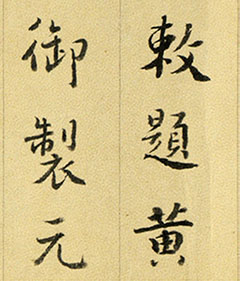 敕題黃
御製元